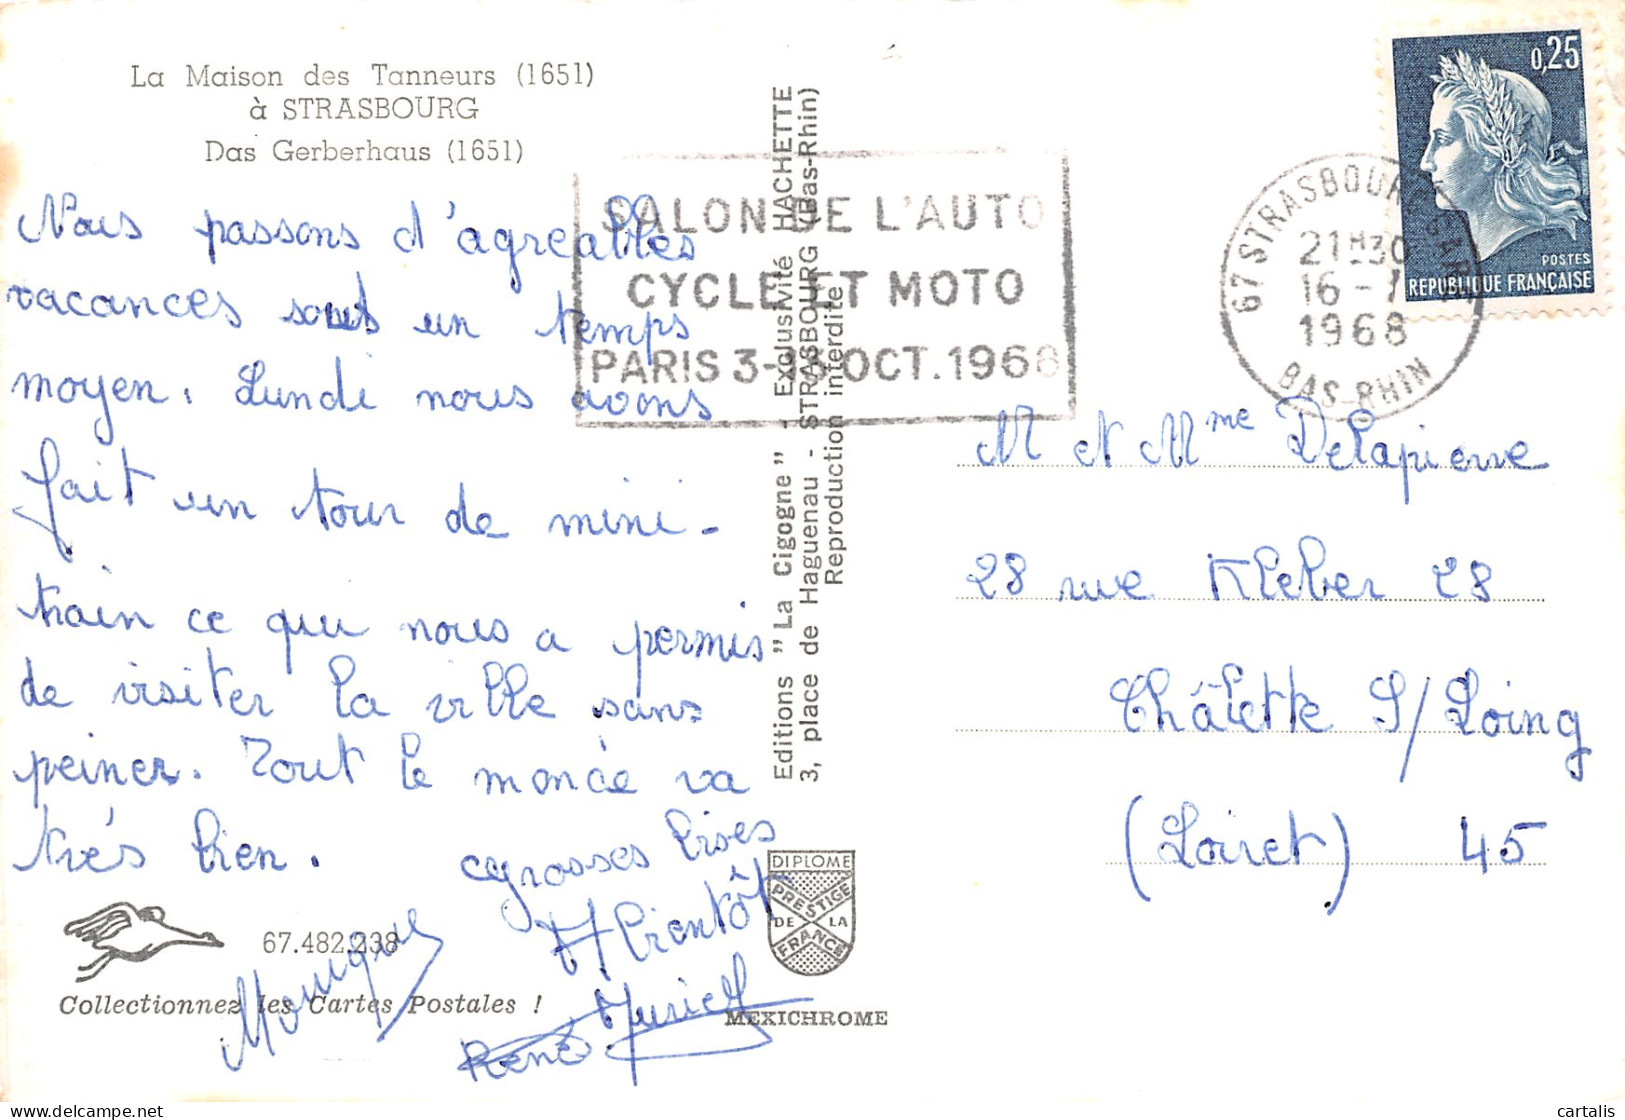 La Maison des Tanneurs (1651)
à STRASBOURG
Das Gerberhaus (1651)
Nous passons d'agreables
vacances sous un temps
moyen. Lundi nous avons
fait un tour de mini-
train ce qui nous a permis
de visiter la ville sans
peiner. Tout le monde va
très bien.
grosses bises
A Bientôt
Monique
René
Muriel
67.482.238
Collectionnez les Cartes Postales !
Editions "La Cigogne" - Exclusivité HACHETTE
3, place de Haguenau - STRASBOURG (Bas-Rhin)
Reproduction interdite
DIPLOME
PRESTIGE
DE LA
FRANCE
MEXICHROME
SALON DE L'AUTO
CYCLE ET MOTO
PARIS 3-13 OCT. 1968
67 STRASBOURG GARE
21H30
16-7
1968
BAS-RHIN
0,25
POSTES
REPUBLIQUE FRANÇAISE
M et Mme Delapierre
28 rue Kleber 28
Châlette S/Loing
(Loiret) 45
cartalis
delcampe.net